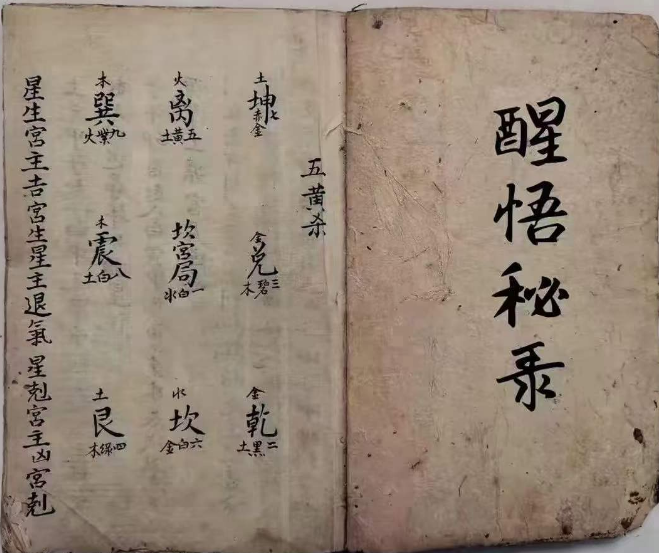 醒悟秘录
五黄杀
土
坤
七赤金
金
兑
三碧木
金
乾
二黑土
火
离
五黄土
坎宮局
一白水
水
坎
六白金
木
巽
九紫火
木
震
八白土
土
艮
四綠木
星生宮主吉宮生星主退氣星剋宮主凶宮剋